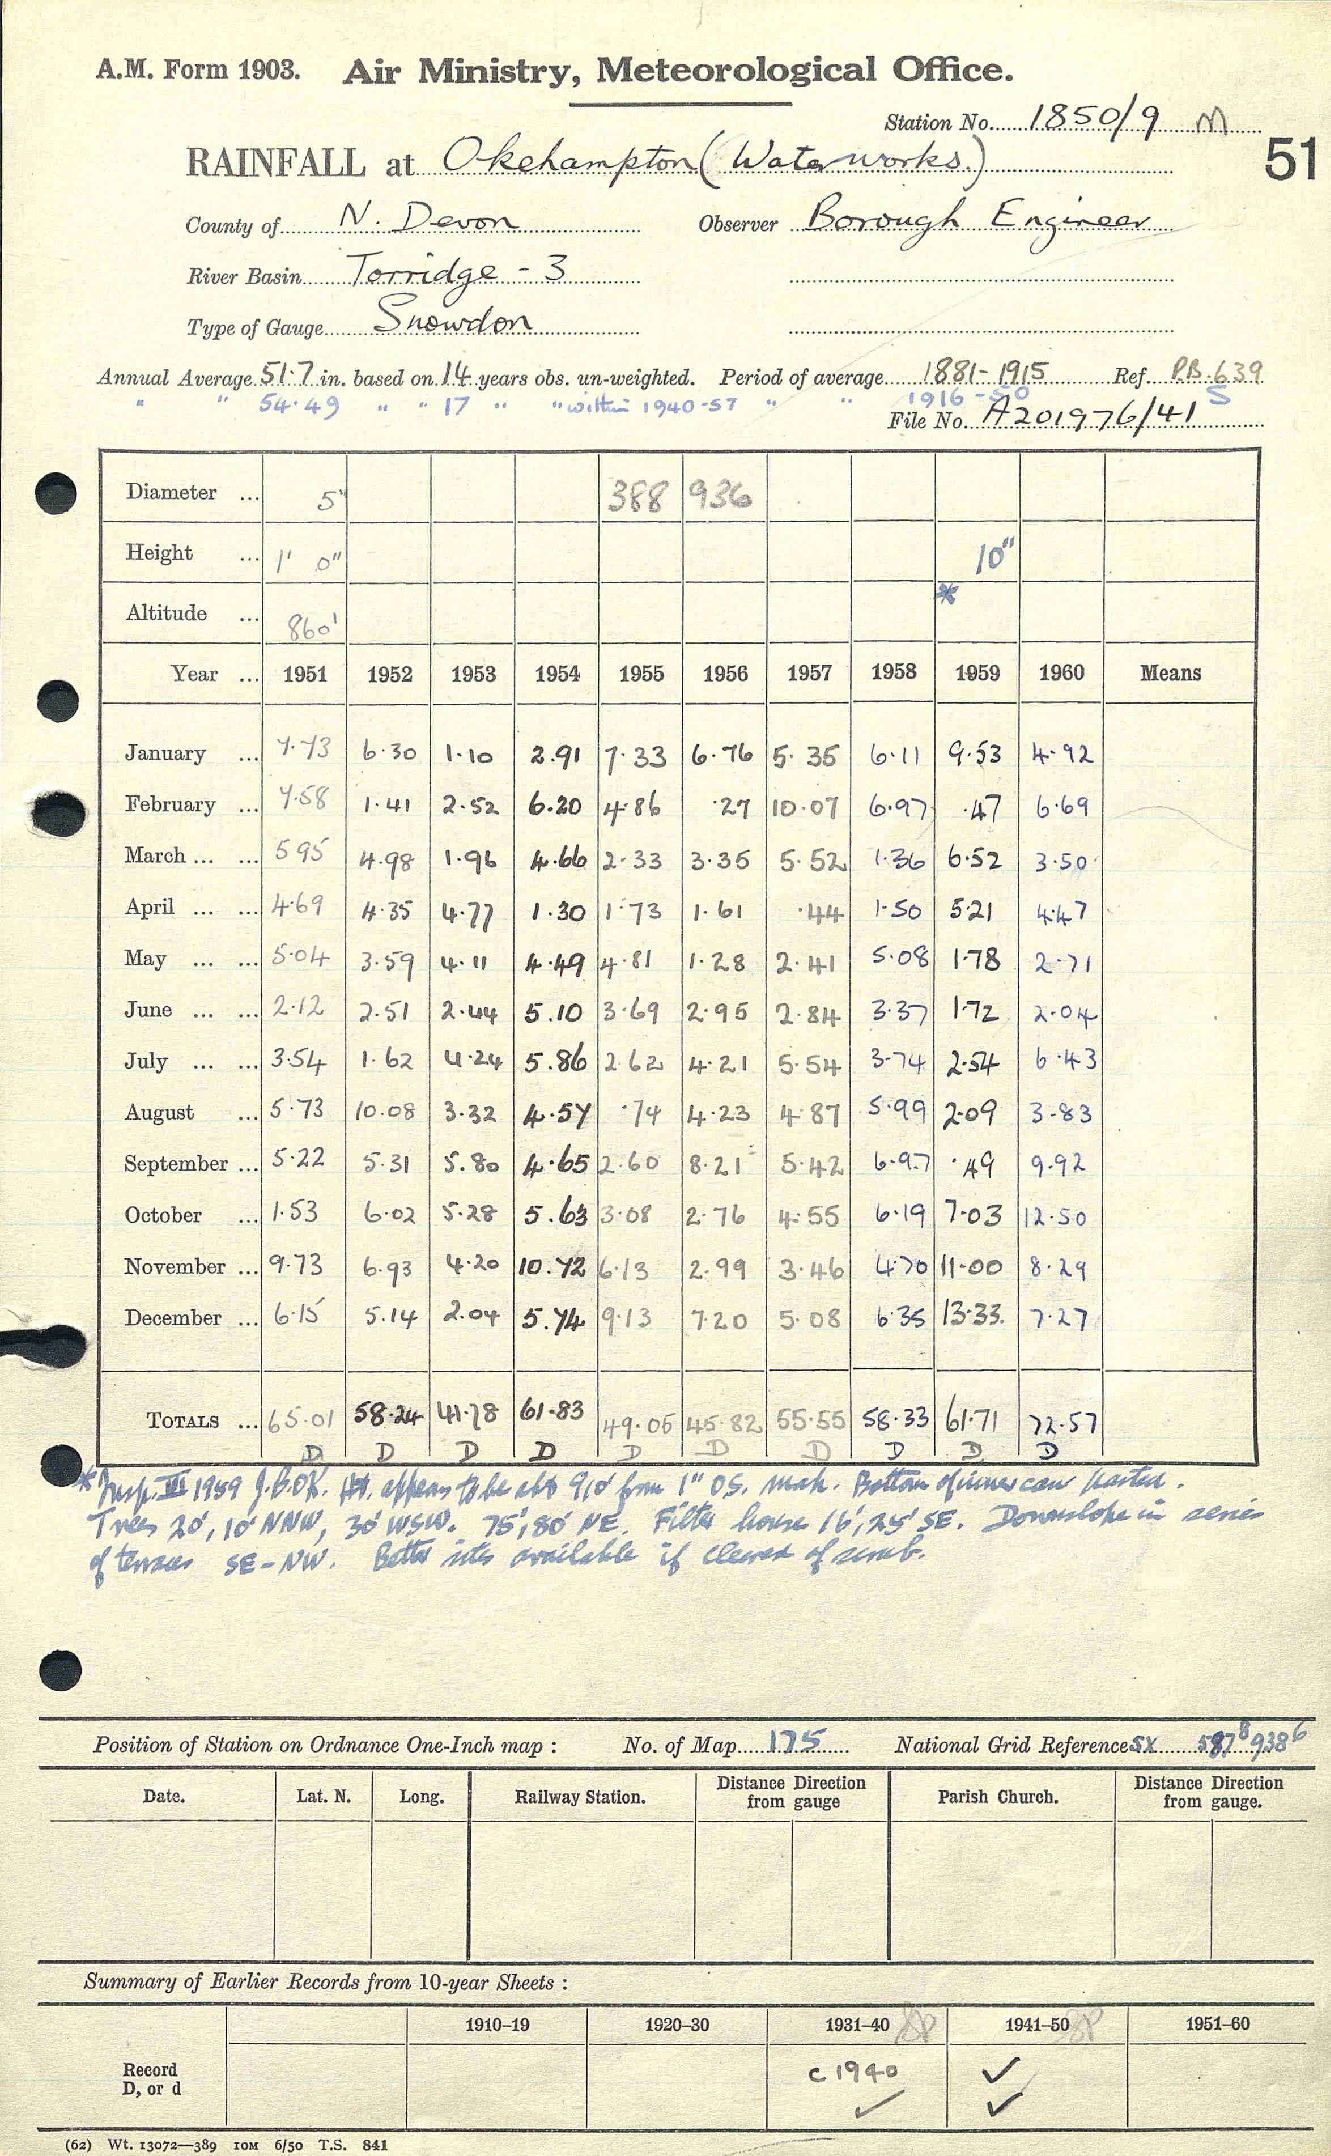 A.M. Form 1903. Air Ministry, Meteorological Office.
Station No. 1850/9 M
51
RAINFALL at Okehampton (Waterworks.)
County of N. Devon Observer Borough Engineer
River Basin Torridge - 3
Type of Gauge Snowdon
Annual Average 51.7 in. based on 14 years obs. un-weighted. Period of average 1881-1915 Ref. P.B. 639
" " 54.49 " " 17 " " within 1940-57 " " 1916-50 S
File No. A201976/41
Diameter ... 5" 388 936
Height ... 1' 0" 10"
*
Altitude ... 860'
Year ... 1951 1952 1953 1954 1955 1956 1957 1958 1959 1960 Means
January ... 7.73 6.30 1.10 2.91 7.33 6.76 5.35 6.11 9.53 4.92
February ... 7.58 1.41 2.52 6.20 4.86 .27 10.07 6.97 .47 6.69
March ... ... 5.95 4.98 1.96 4.66 2.33 3.35 5.52 1.36 6.52 3.50
April ... ... 4.69 4.35 4.77 1.30 1.73 1.61 .44 1.50 5.21 4.47
May ... ... 5.04 3.59 4.11 4.49 4.81 1.28 2.41 5.08 1.78 2.71
June ... ... 2.12 2.51 2.44 5.10 3.69 2.95 2.84 3.37 1.72 2.04
July ... ... 3.54 1.62 4.24 5.86 2.62 4.21 5.54 3.74 2.54 6.43
August ... 5.73 10.08 3.32 4.57 .74 4.23 4.87 5.99 2.09 3.83
September ... 5.22 5.31 5.80 4.65 2.60 8.21 5.42 6.97 .49 9.92
October ... 1.53 6.02 5.28 5.63 3.08 2.76 4.55 6.19 7.03 12.50
November ... 9.73 6.93 4.20 10.72 6.13 2.99 3.46 4.70 11.00 8.29
December ... 6.15 5.14 2.04 5.74 9.13 7.20 5.08 6.35 13.33 7.27
TOTALS ... 65.01 58.24 41.78 61.83 49.05 45.82 55.55 58.33 61.71 72.57
D D D D D D D D D D
* Insp. III 1959 Ht. appears to be abt 910' from 1" O.S. map. Bottom of inner can
Trees 20', 10' NNW, 30' WSW. 75', 80' NE. Filter house 16', 25' SE. Downslope in series
of terraces SE-NW. Better sites available if cleared of scrub.
Position of Station on Ordnance One-Inch map : No. of Map 175 National Grid Reference SX 587⁸ 938⁶
Date. Lat. N. Long. Railway Station. Distance Direction from gauge Parish Church. Distance Direction from gauge.
Summary of Earlier Records from 10-year Sheets :
1910-19 1920-30 1931-40 1941-50 1951-60
Record c 1940 ✓
D, or d ✓ ✓
(62) Wt. 13072—389 10M 6/50 T.S. 841